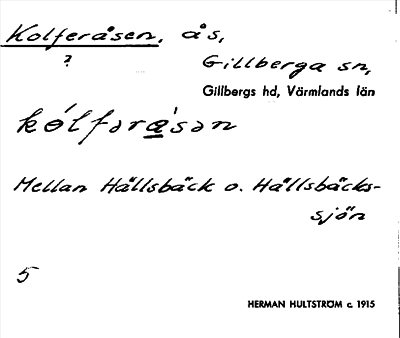 Kolferåsen, ås,
?
Gillberga sn,
Gillbergs hd, Värmlands län
kólfərа̊̀sən
Mellan Hällsbäck o. Hällsbäcks-
sjön
5
HERMAN HULTSTRÖM c. 1915